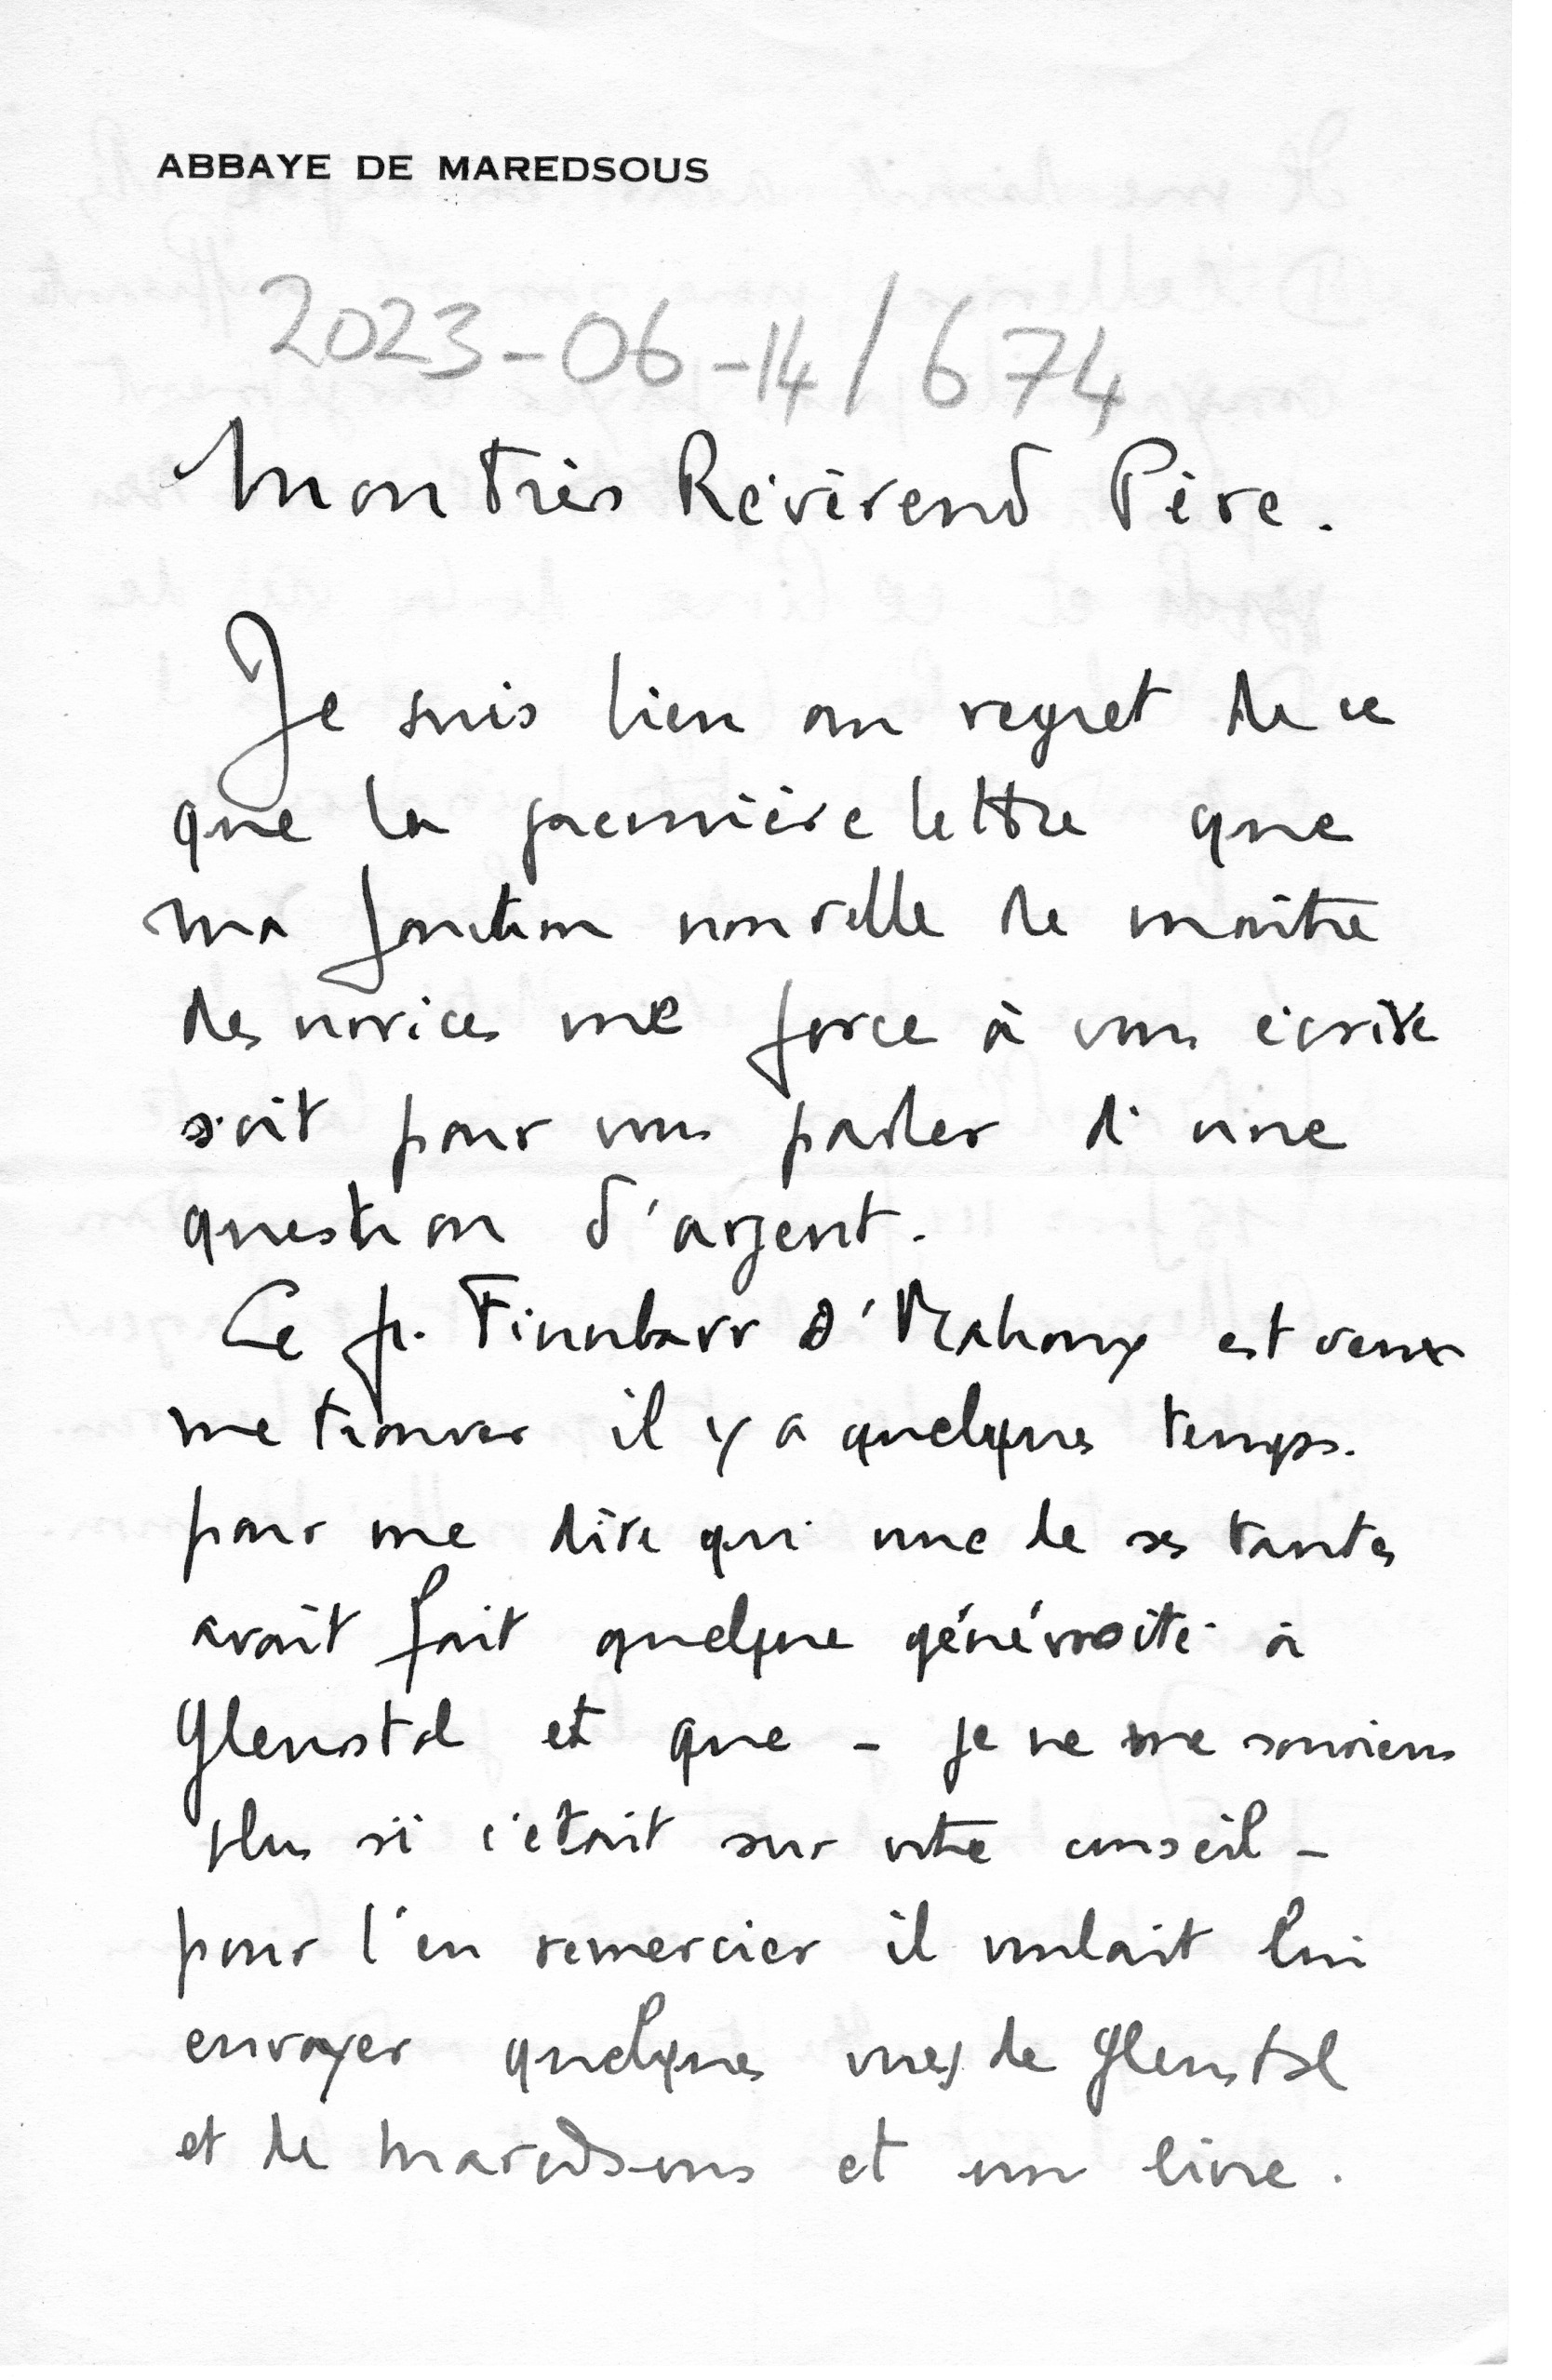 ABBAYE DE MAREDSOUS
2023-06-14/674
Mon Très Révérend Père.
Je suis bien au regret de ce
que la première lettre que
ma fonction nouvelle de maître
des novices me force à vous écrire
soit pour vous parler d'une
question d'argent.
Le fr. Finnbarr O'Mahony est venu
me trouver il y a quelques temps.
pour me dire qu'une de ses tantes
avait fait quelque générosité à
Glenstal et que - je ne me souviens
plus si c'était sur votre conseil -
pour l'en remercier il voulait lui
envoyer quelques vues de Glenstal
et de Maredsous et un livre.